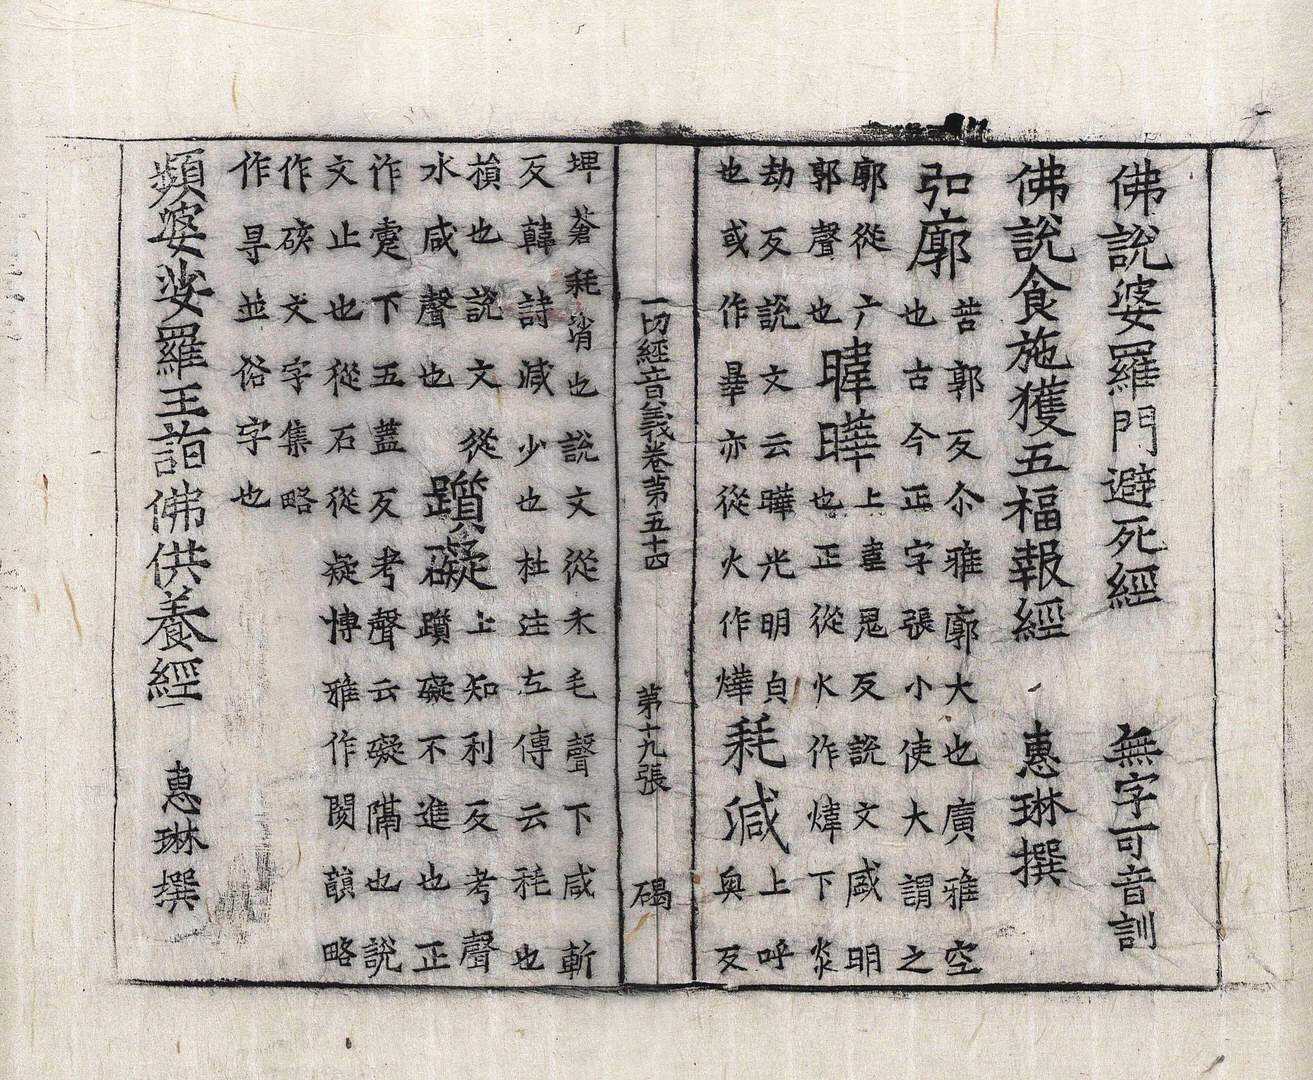 佛說婆羅門避死經 無字可音訓
佛說食施獲五福報經 惠琳撰
弘廓 苦郭反尒雅廓大也廣雅空
也古今正字張小使大謂之
廓從广
郭聲也
暐曄 上韋鬼反說文盛明
也正從火作煒下炎
劫反說文云曄光明皃
也或作曅亦從火作燁
耗減 上呼
奥反
一切經音義卷第五十四 第十九張 碣
埤蒼耗消也說文從禾毛聲下咸斬
反韓詩減少也杜注左傳云秏也
損也說文從
水咸聲也
躓礙 上知利反考聲
躓礙不進也正
作疐下五蓋反考聲云礙隔也說
文止也從石從疑博雅作閡韻略
作硋文字集略
作㝵並俗字也
頻婆娑羅王詣佛供養經 惠琳撰